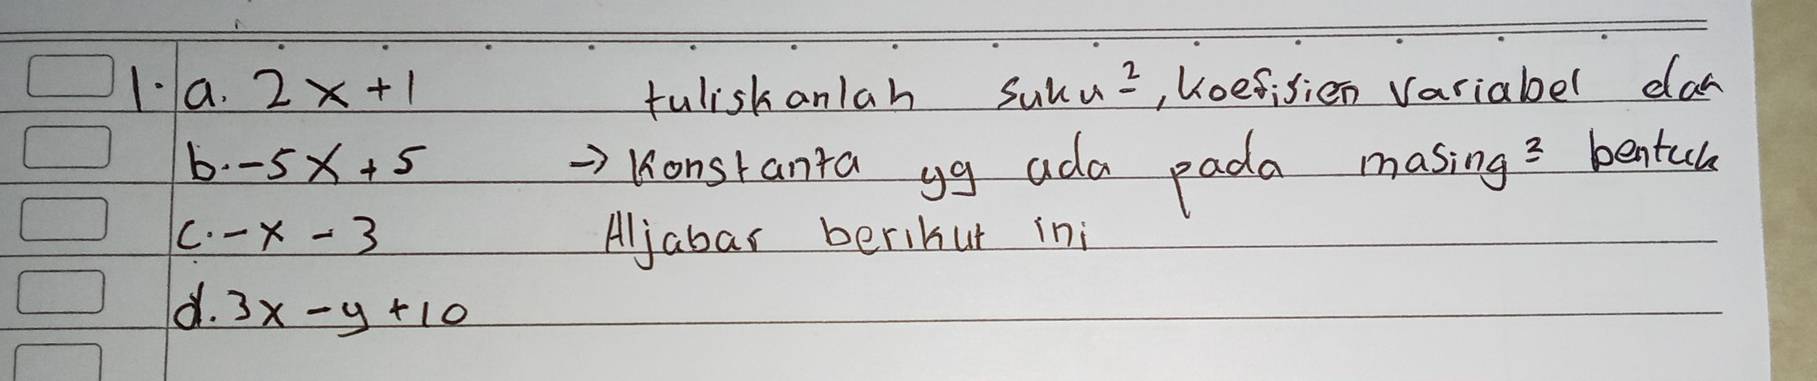 1. a. 2x+1 tuliskanlah suku², koefisien variabel dan
b. -5x+5 → Konstanta yg ada pada masing² bentuk
c. -x-3 Aljabar berikut ini
d. 3x-y+10